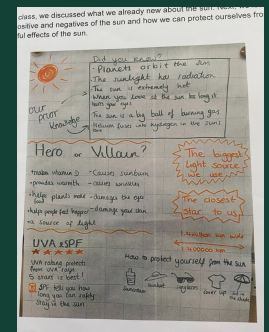 class, we discussed what we already knew about the sun. Next, we
ositive and negatives of the sun and how we can protect ourselves fro
ful effects of the sun.
Did you know?
- Planets orbit the sun
- The sunlight has radiation
- The sun is extremely hot
- When you look at the sun too long it
burn your eyes
- The sun is a big ball of burning gas
- Helium fuses into hydrogen in the sun's
core
Our
Prior
Knowledge
Hero or Villain?
+ makes vitamin D
+ provides warmth
+ helps plants make food
+ helps people feel happier
+ a source of light
- Causes sunburn
- causes wrinkles
- damages the eyes
- damage your skin
The biggest
light source
we use
The closest
star to us
UVA & SPF
UVA rating protects
from UVA rays
5 stars is best!
SPF tells you how
long you can safely
stay in the sun
How to protect yourself from the sun
Suncream
sunhat
sunglasses
cover up
sit in
the shade